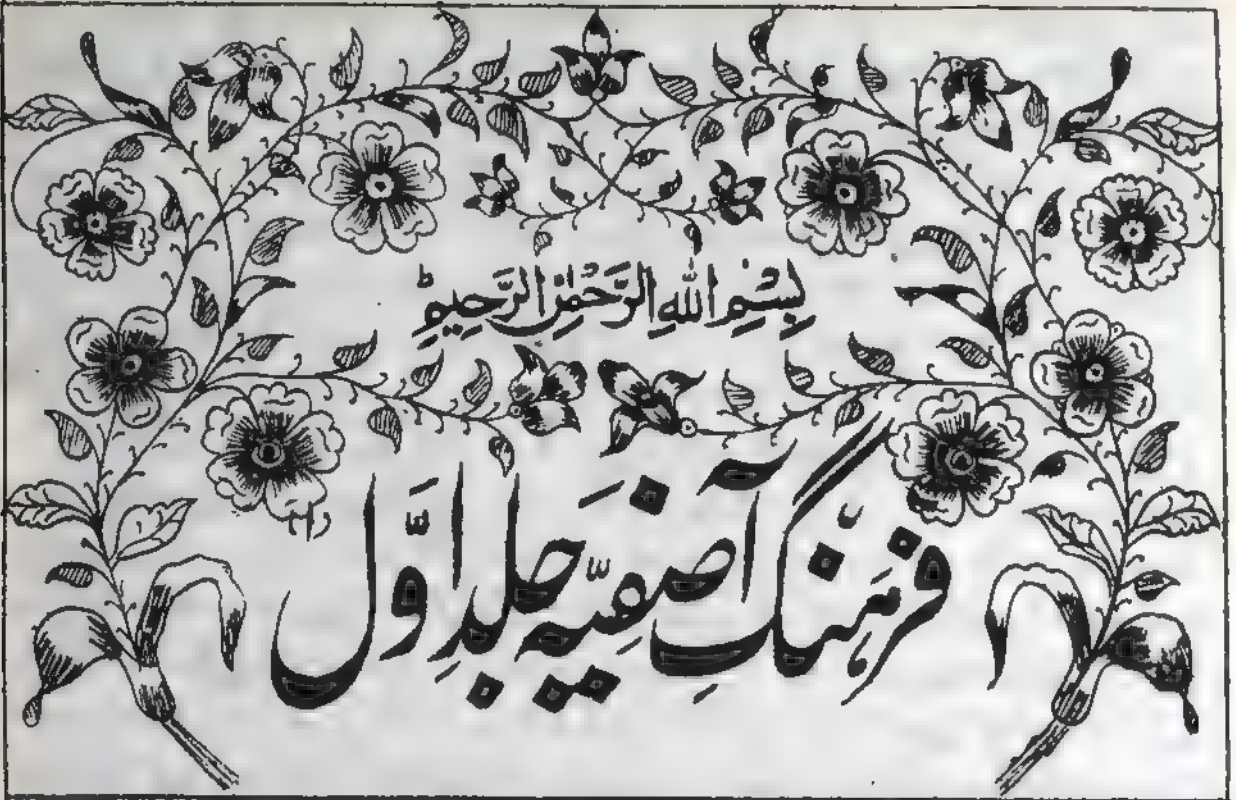 بِسْمِ اللهِ الرَّحْمٰنِ الرَّحِيْمِ
فرہنگِ آصفیہ جلدِ اوّل